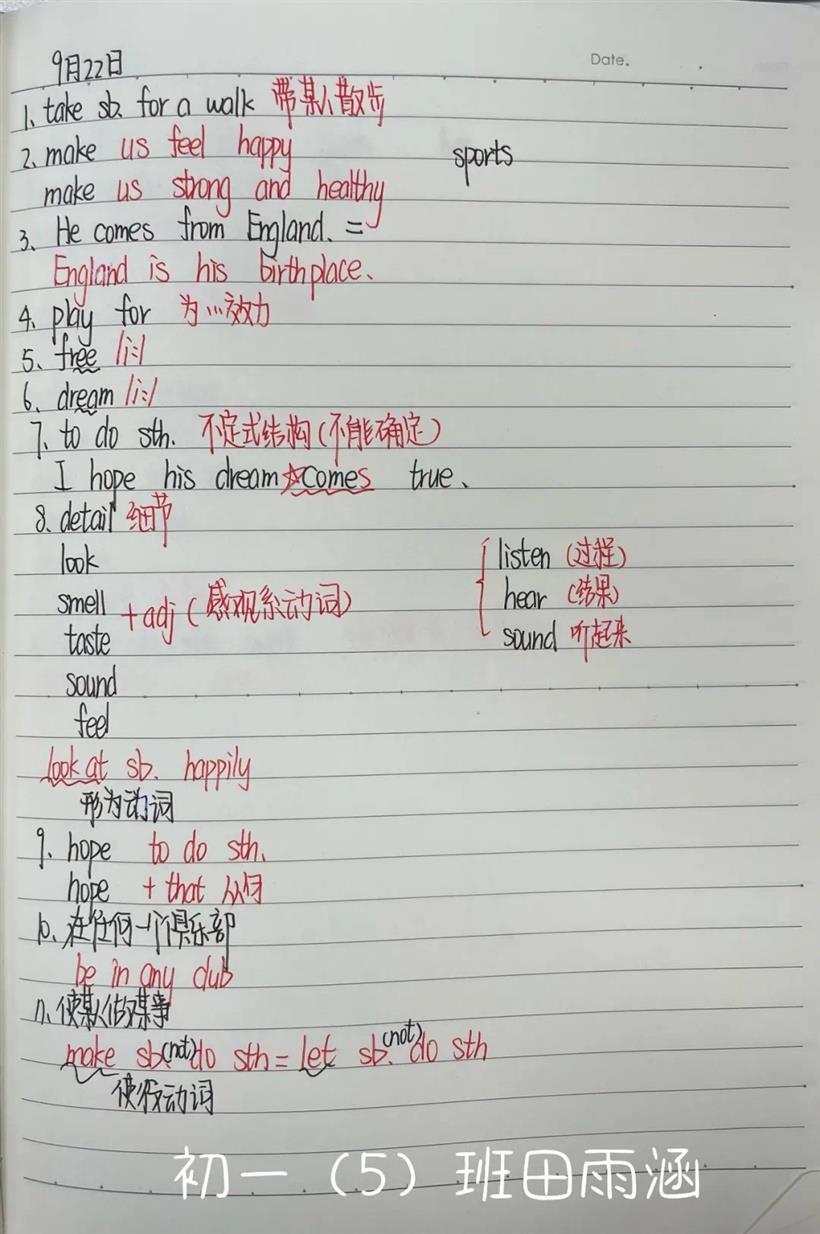 Date.
9月22日
1、take sb. for a walk 带某人散步
2、make us feel happy sports
make us strong and healthy
3、He comes from England. =
England is his birthplace.
4、play for 为…效力
5、free /i:/
6、dream /i:/
7、to do sth. 不定式结构(不能确定)
I hope his dream ☆comes true.
8、detail 细节
look listen (过程)
smell +adj (感观系动词) hear (结果)
taste sound 听起来
sound
feel
look at sb. happily
形为动词
9、hope to do sth.
hope + that 从句
10、在任何一个俱乐部
be in any club
11、使某人做某事
make sb.(not)do sth = let sb.(not)do sth
使役动词
初一（5）班田雨涵